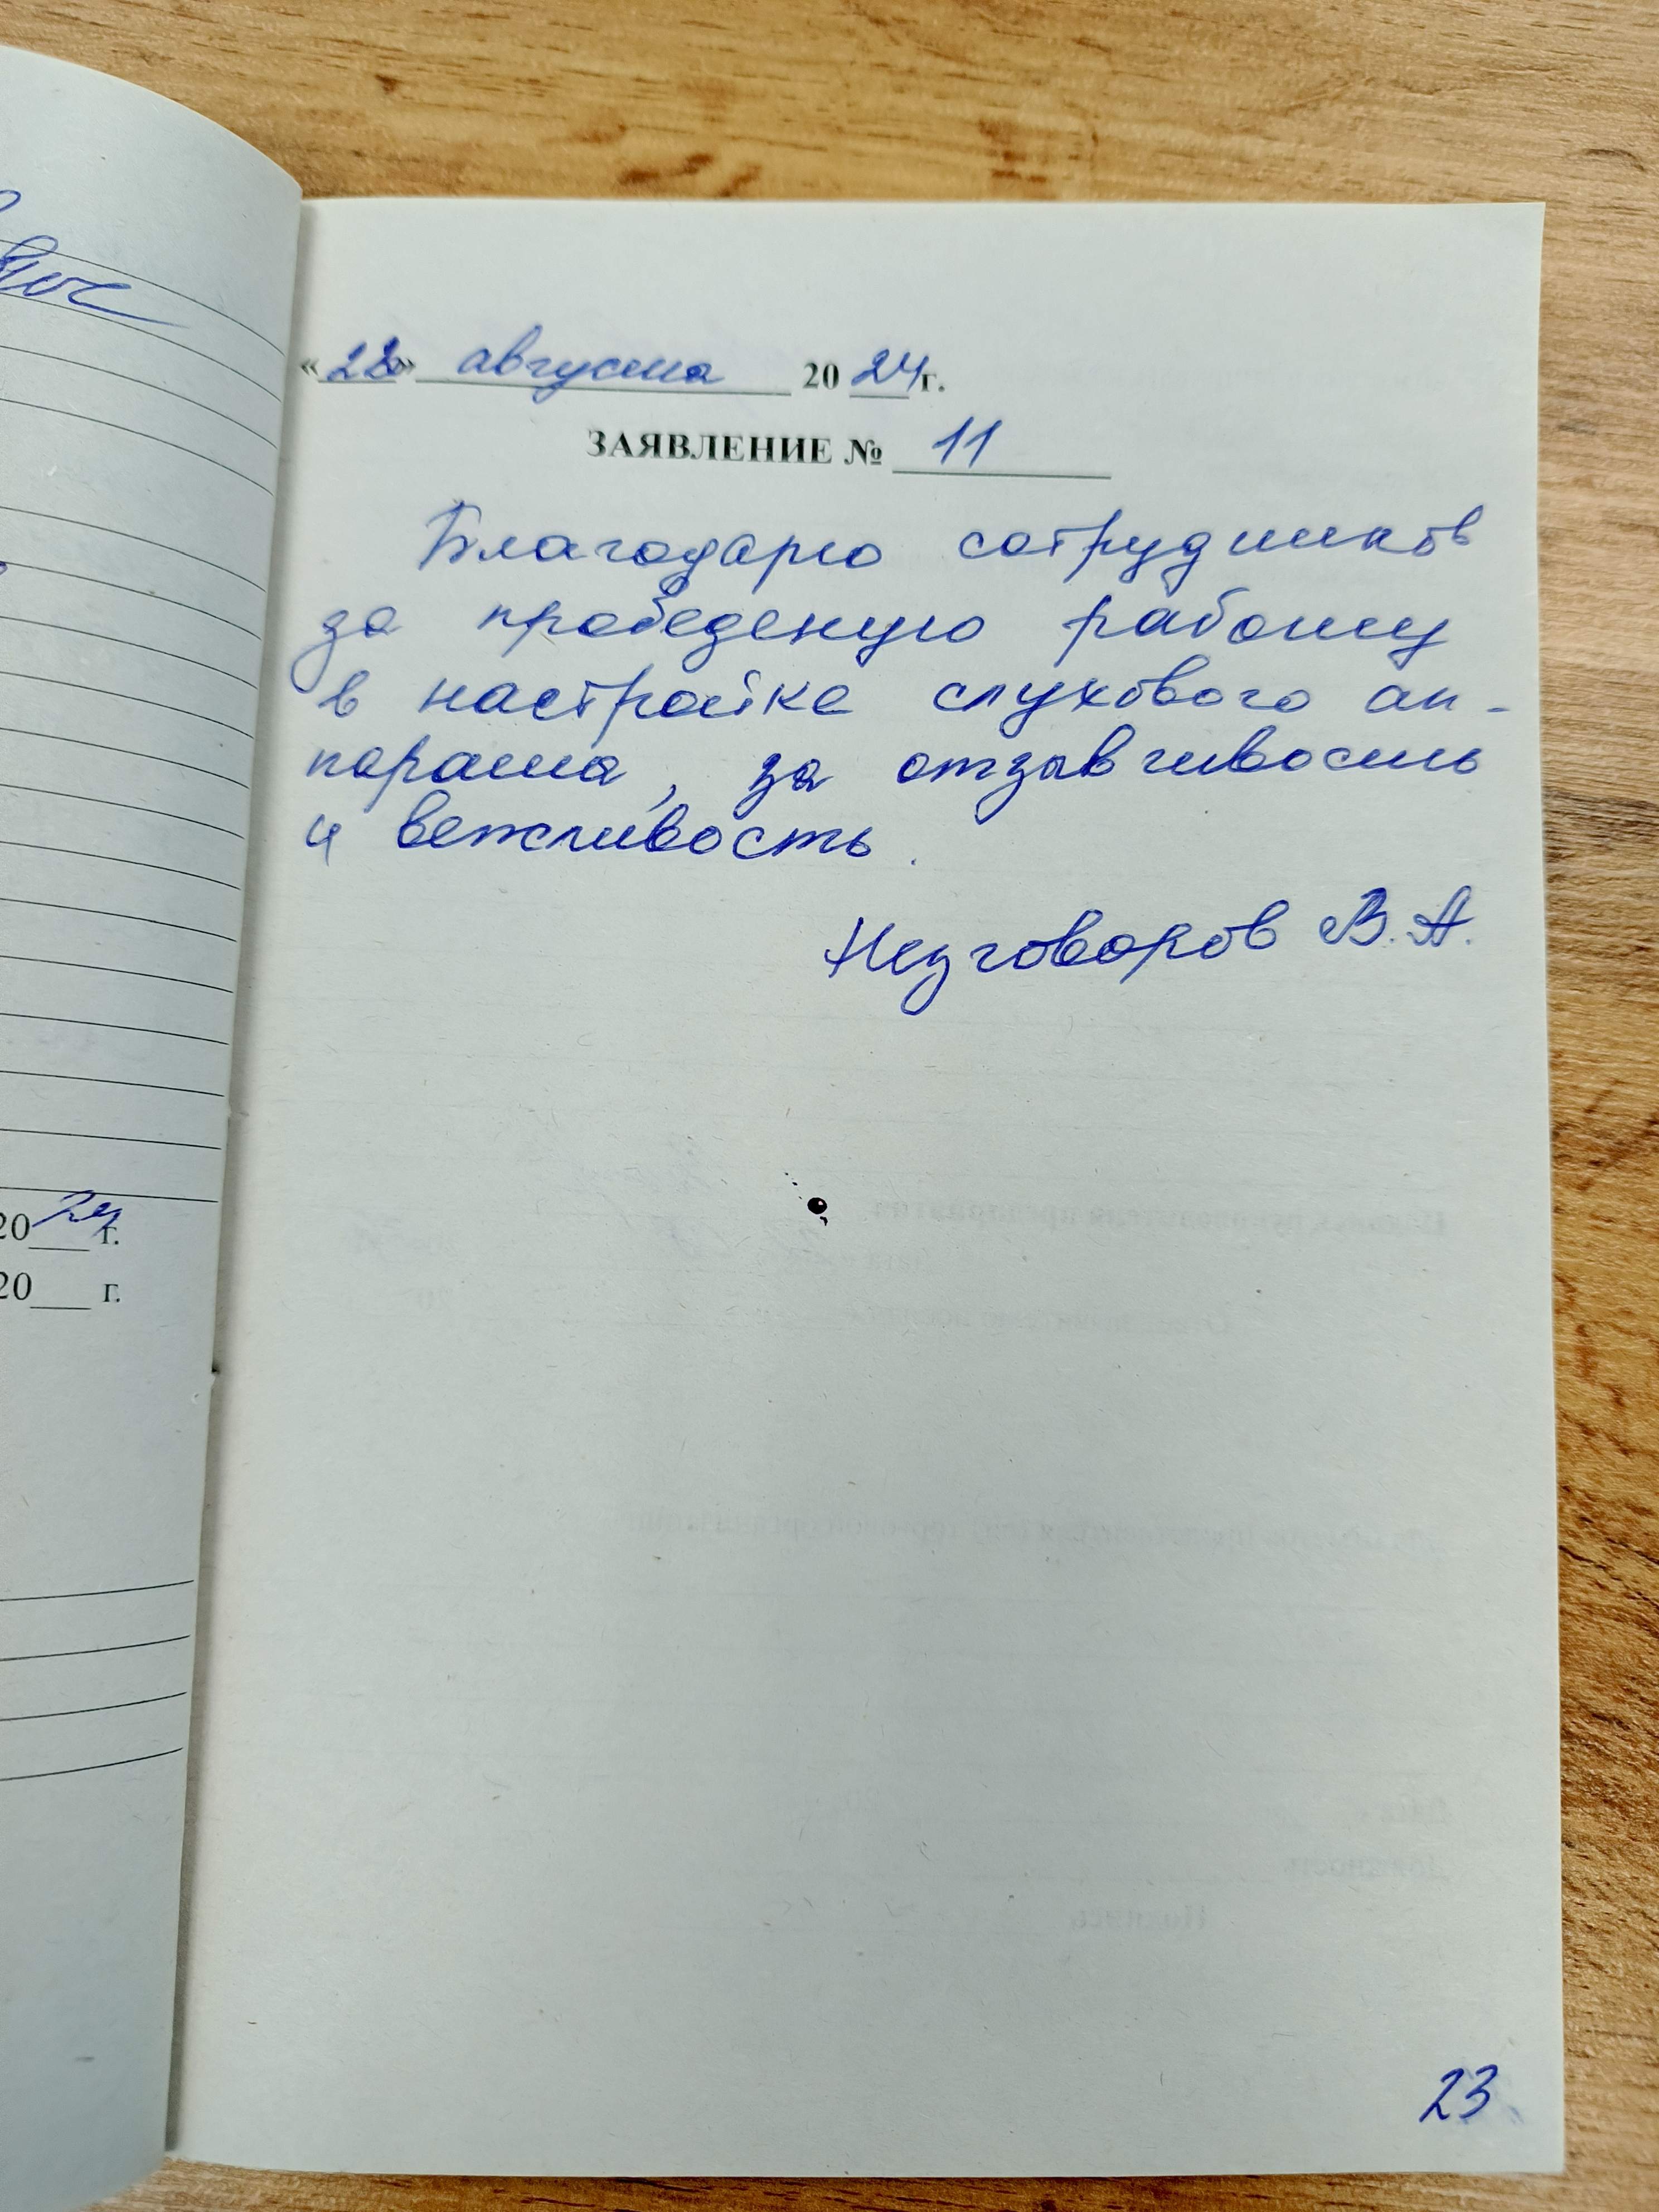 «28» августа 2024г.
ЗАЯВЛЕНИЕ № 11
Благодарю сотрудников
за проведеную работу
в настройке слухового ап-
парата, за отзывчивость
и вежливость.
Недговоров В.А.
2024 г.
20___ г.
23